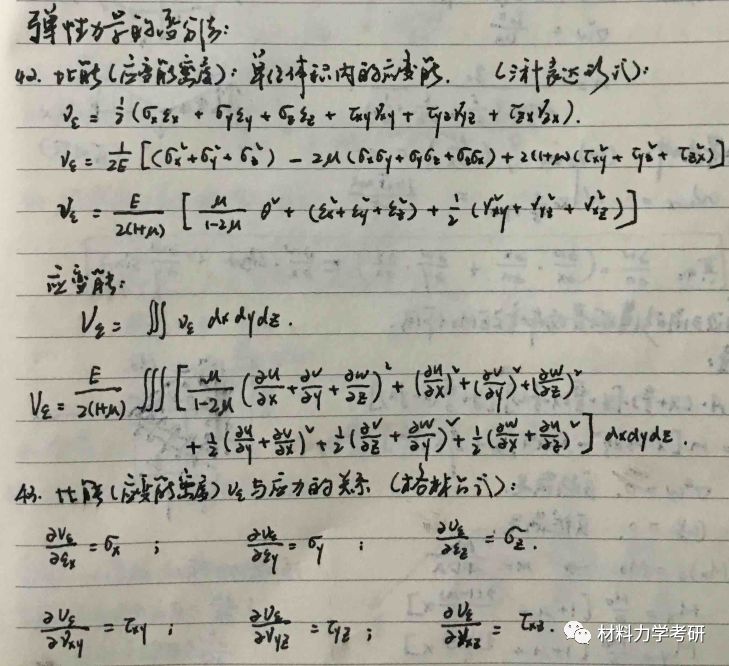 弹性力学的变分法:
42. 比能(应变能密度): 单位体积内的应变能. (三种表达形式):
νε = 1/2 (σxεx + σyεy + σzεz + τxyγxy + τyzγyz + τzxγzx).
νε = 1/2E [(σx²+σy²+σz²) − 2μ(σxσy+σyσz+σzσx) + 2(1+μ)(τxy²+τyz²+τzx²)]
νε = E/2(1+μ) [μ/1-2μ θ² + (εx²+εy²+εz²) + 1/2 (γxy²+γyz²+γxz²)]
应变能:
Vε = ∭ νε dxdydz.
Vε = E/2(1+μ) ∭ [μ/1-2μ (∂u/∂x + ∂v/∂y + ∂w/∂z)² + (∂u/∂x)² + (∂v/∂y)² + (∂w/∂z)²
+ 1/2 (∂u/∂y + ∂v/∂x)² + 1/2 (∂v/∂z + ∂w/∂y)² + 1/2 (∂w/∂x + ∂u/∂z)²] dxdydz.
43. 比能(应变能密度) νε 与应力的关系 (格林公式):
∂νε/∂εx = σx ; ∂νε/∂εy = σy ; ∂νε/∂εz = σz.
∂νε/∂γxy = τxy ; ∂νε/∂γyz = τyz ; ∂νε/∂γxz = τxz.
材料力学考研